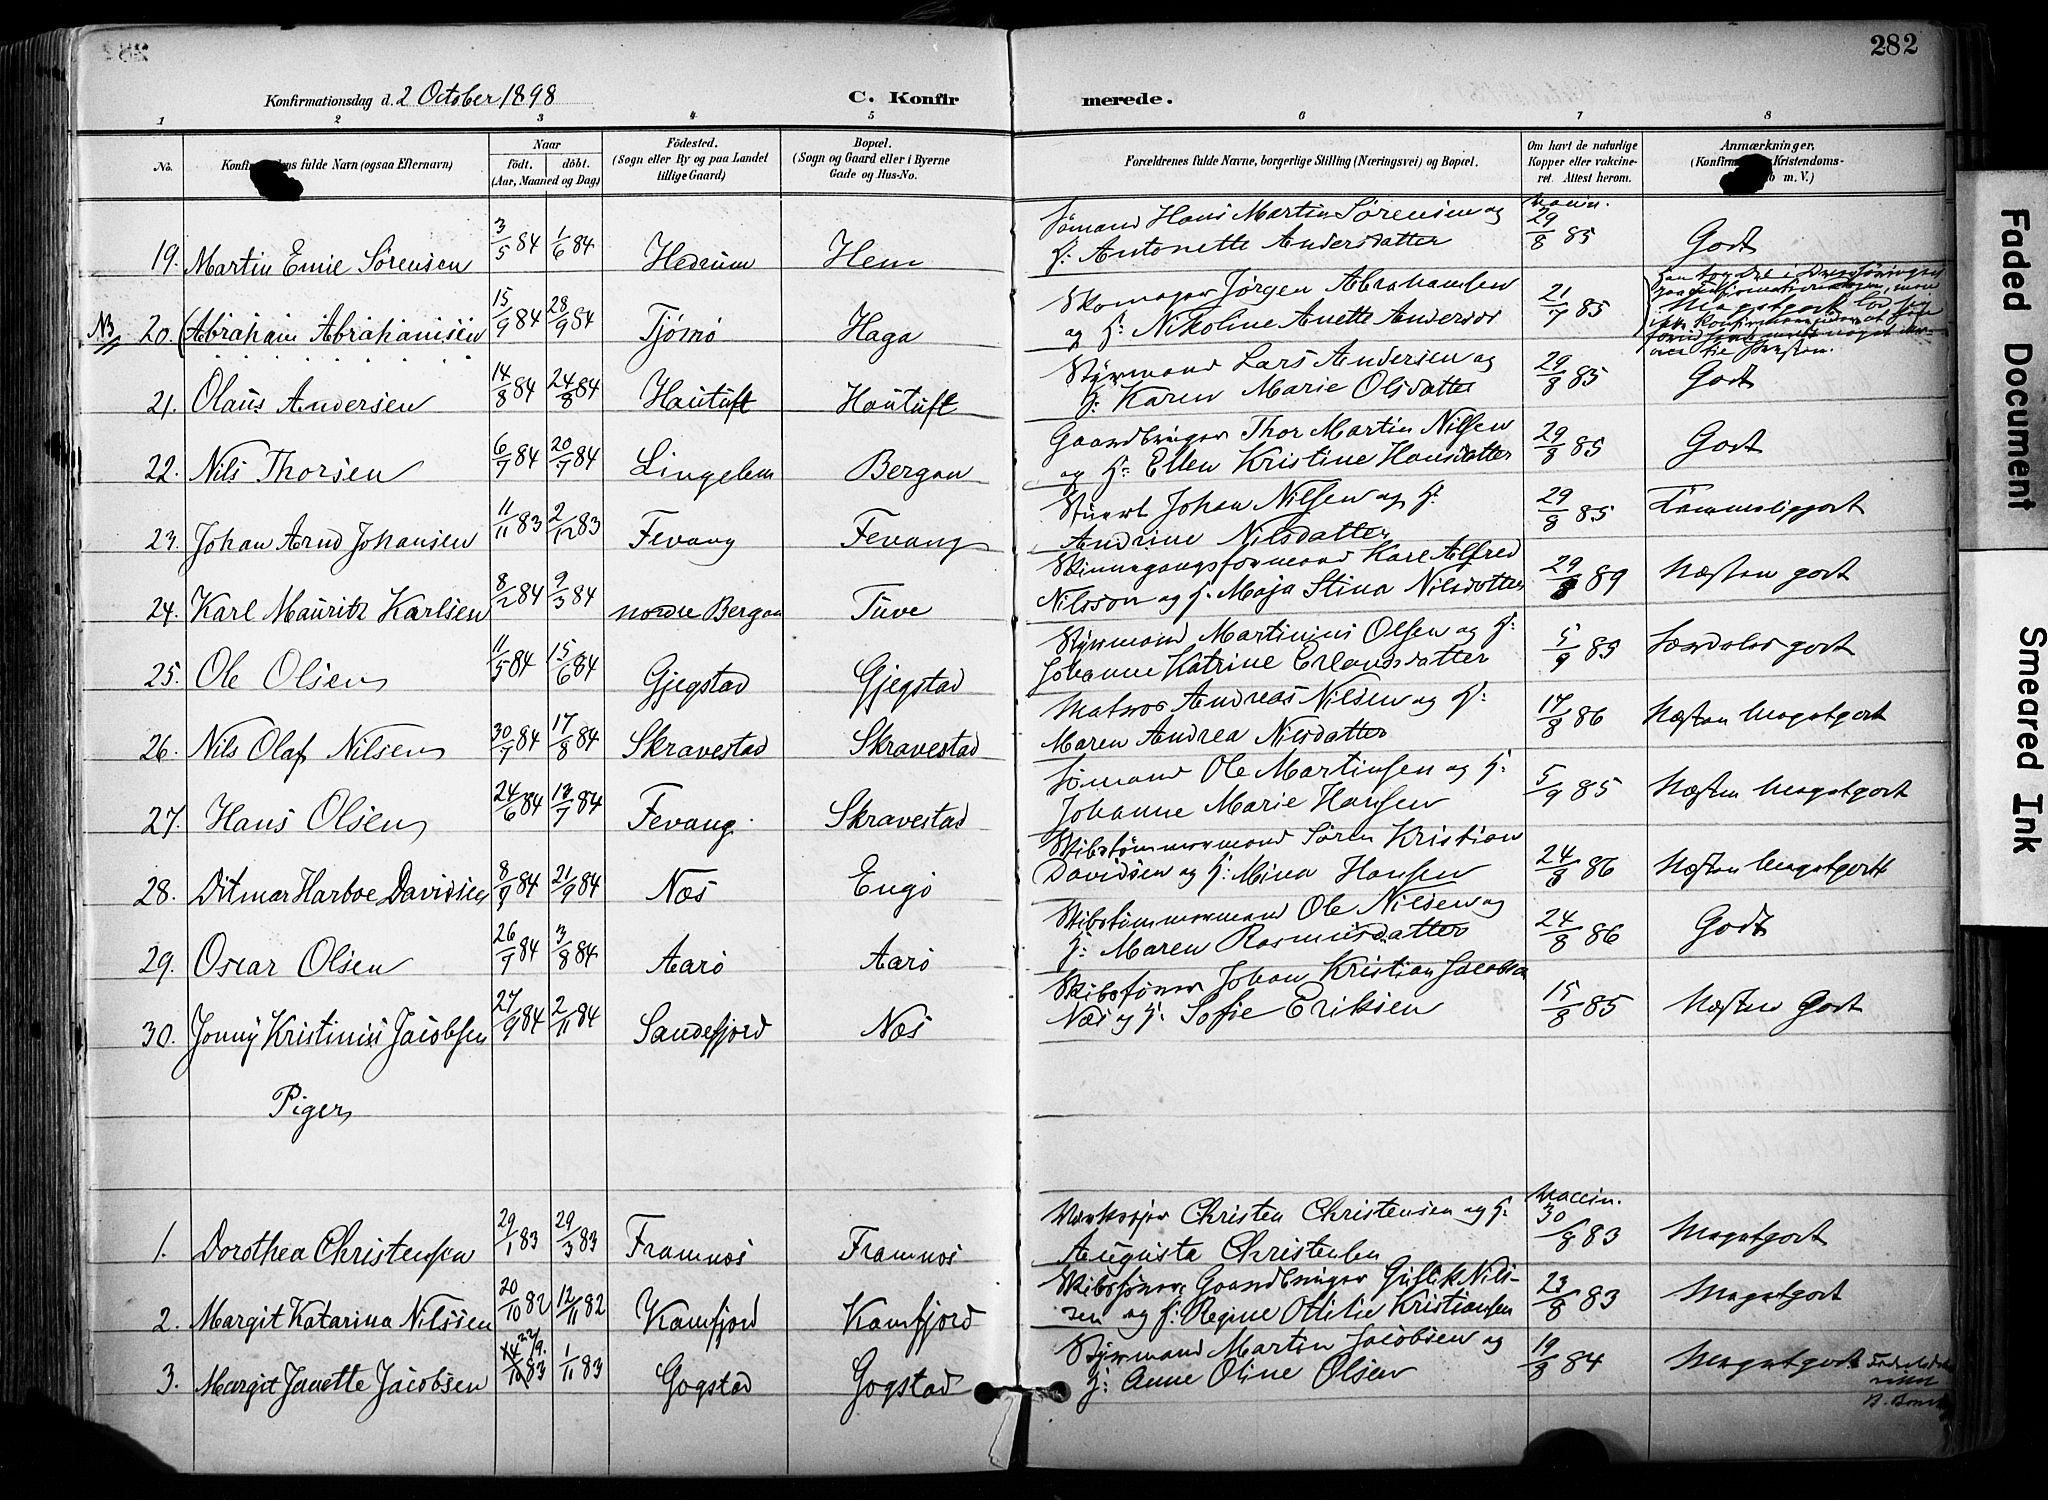 282
Konfirmationsdag d. 2 October 1898
C. Konfirmerede.
1 2 3 4 5 6 7 8
No.
Konfirmandens fulde Navn (ogsaa Efternavn)
Naar
født. døbt.
(Aar, Maaned og Dag)
Fødested.
(Sogn eller By og paa Landet
tillige Gaard)
Bopæl.
(Sogn og Gaard eller i Byerne
Gade og Hus-No.
Forældrenes fulde Navne, borgerlige Stilling (Næringsvei) og Bopæl.
Om havt de naturlige
Kopper eller vakcine-
ret. Attest herom.
Anmærkninger.
m. V.)
Sømand Hans Martin Sørensen og
19. Martin Emil Sørensen 3/5 84 1/6 84 Hedrum Hem
h: Antonette Andersdatter 29/8 85 Godt
Skomager Jørgen Abrahamsen
NB 20. (Abraham Abrahamsen 15/9 84 28/9 84 Tjømø Haga
og h: Nikoline Anette Andersdr 21/7 85
Styrmand Lars Andersen og
21. Olaus Andersen 14/8 84 24/8 84 Hautuft Hautuft
h: Karen Marie Olsdatter 29/8 85 Godt
Gaardbruger Thor Martin Nilsen
22. Nils Thorsen 6/7 84 20/7 84 Lingelem Bergan
og h: Ellen Kristine Hansdatter 29/8 85 Godt
Stuert Johan Nilsen og h:
23. Johan Arnd Johansen 11/11 83 2/12 83 Fevang Fevang
Andrine Nilsdatter 29/8 85 Temmeliggodt
Skinnegangsformand Karl Alfred
24. Karl Mauritz Karlsen 8/2 84 9/3 84 nordre Bergan Tuve
Nilsson og h: Maja Stina Nilsdotter 29/8 89 Næsten godt
Styrmand Martinius Olsen og h:
25. Ole Olsen 11/5 84 15/6 84 Gjegstad Gjegstad
Johanne Katrine Erlandsdatter 5/9 85 Særdeles godt
Matros Andreas Nilsen og h:
26. Nils Olaf Nilsen 30/7 84 17/8 84 Skravestad Skravestad
Maren Andrea Nilsdatter 17/8 86 Næsten Megetgodt
Sømand Ole Martinsen og h:
27. Hans Olsen 24/6 84 13/7 84 Fevang Skravestad
Johanne Marie Hansen 5/9 85 Næsten Megetgodt
Skibstømmermand Søren Kristian
28. Ditmar Harboe Davidsen 8/9 84 21/9 84 Næs Engø
Davidsen og h: Mina Hansen 24/8 86 Næsten Megetgodt
Skibstømmermand Ole Nilsen og
29. Oscar Olsen 26/7 84 3/8 84 Aarø Aarø
h: Maren Rasmusdatter 24/8 86 Godt
Skibsfører Johan Kristian Jacobsen
30. Jonny Kristinius Jacobsen 27/9 84 2/11 84 Sandefjord Næs
Næs og h: Sofie Eriksen 15/8 85 Næsten Godt
Piger
Værkseier Christen Christensen og h: Vaccin.
1. Dorothea Christensen 29/1 83 29/3 83 Framnæs Framnæs
Augusta Christensen 30/8 83 Megetgodt
Skibsfører, Gaardbruger Gullik Nils-
2. Margit Katarina Nilssen 20/10 82 12/11 82 Kamfjord Kamfjord
sen og h: Regine Otilie Kristiansen 23/8 83 Megetgodt
Styrmand Martin Jacobsen og
3. Margit Janette Jacobsen 22/9. 14/10 83 1/11 83 Gogstad Gogstad
h: Anne Oline Olsen 19/8 84 Megetgodt
Faded Document
Smeared Ink